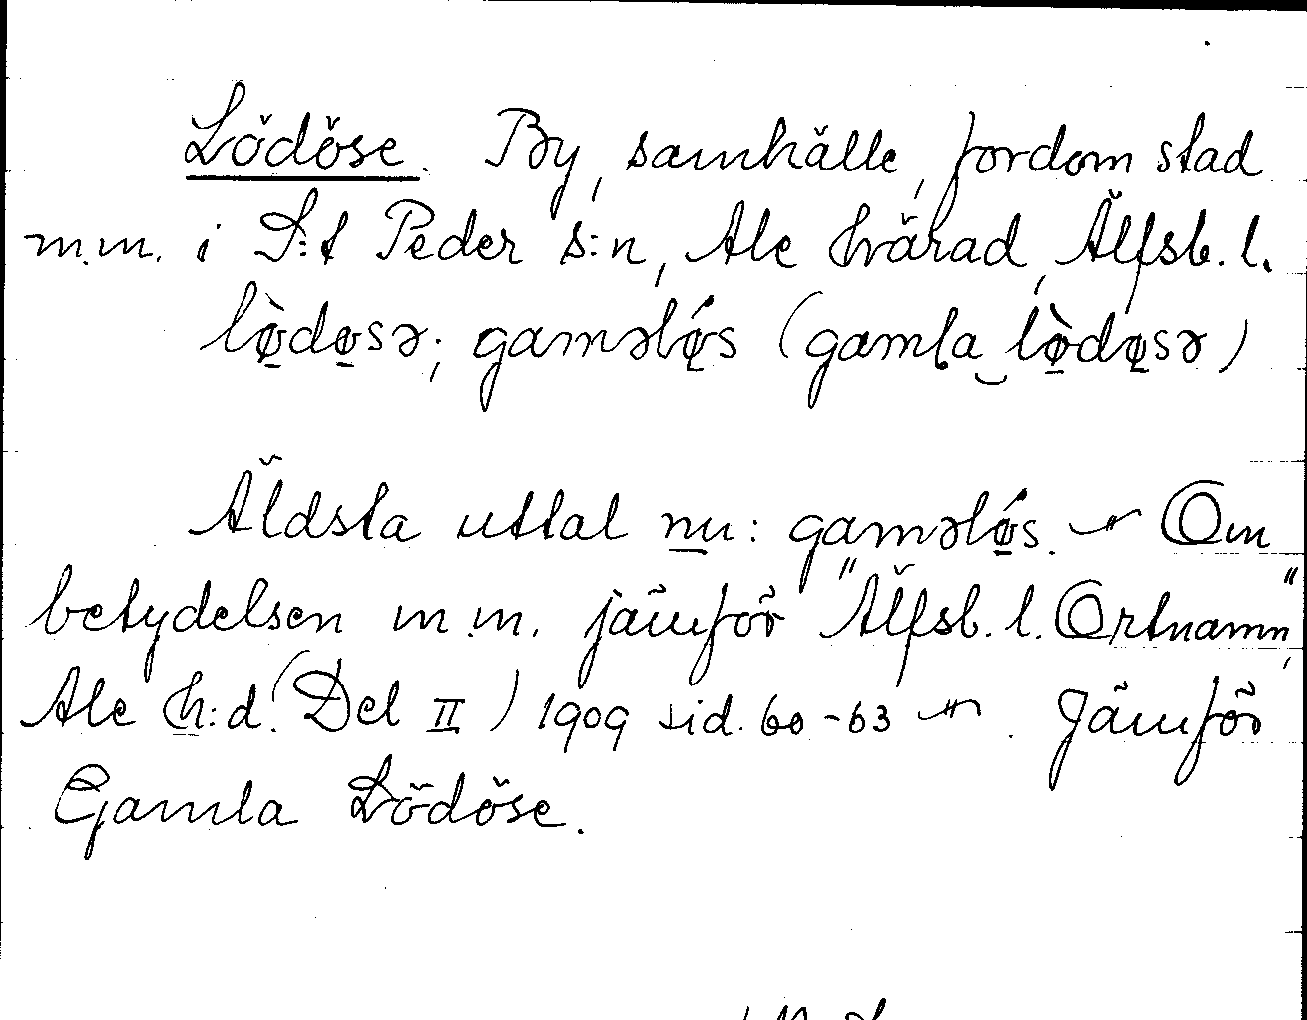 Lödöse. By, samhälle, fordom stad
m.m. i S:t Peder s:n, Ale härad, Älfsb. l.
lø̠̀dø̠sə; gaməlǿs (gamla‿lø̠̀dø̠sə)
Äldsta uttal nu: gaməlǿ̠s. — Om
betydelsen m.m. jämför "Älfsb. l. Ortnamn",
Ale h:d. (Del II) 1909 sid. 60-63 —. Jämför
Gamla Lödöse.